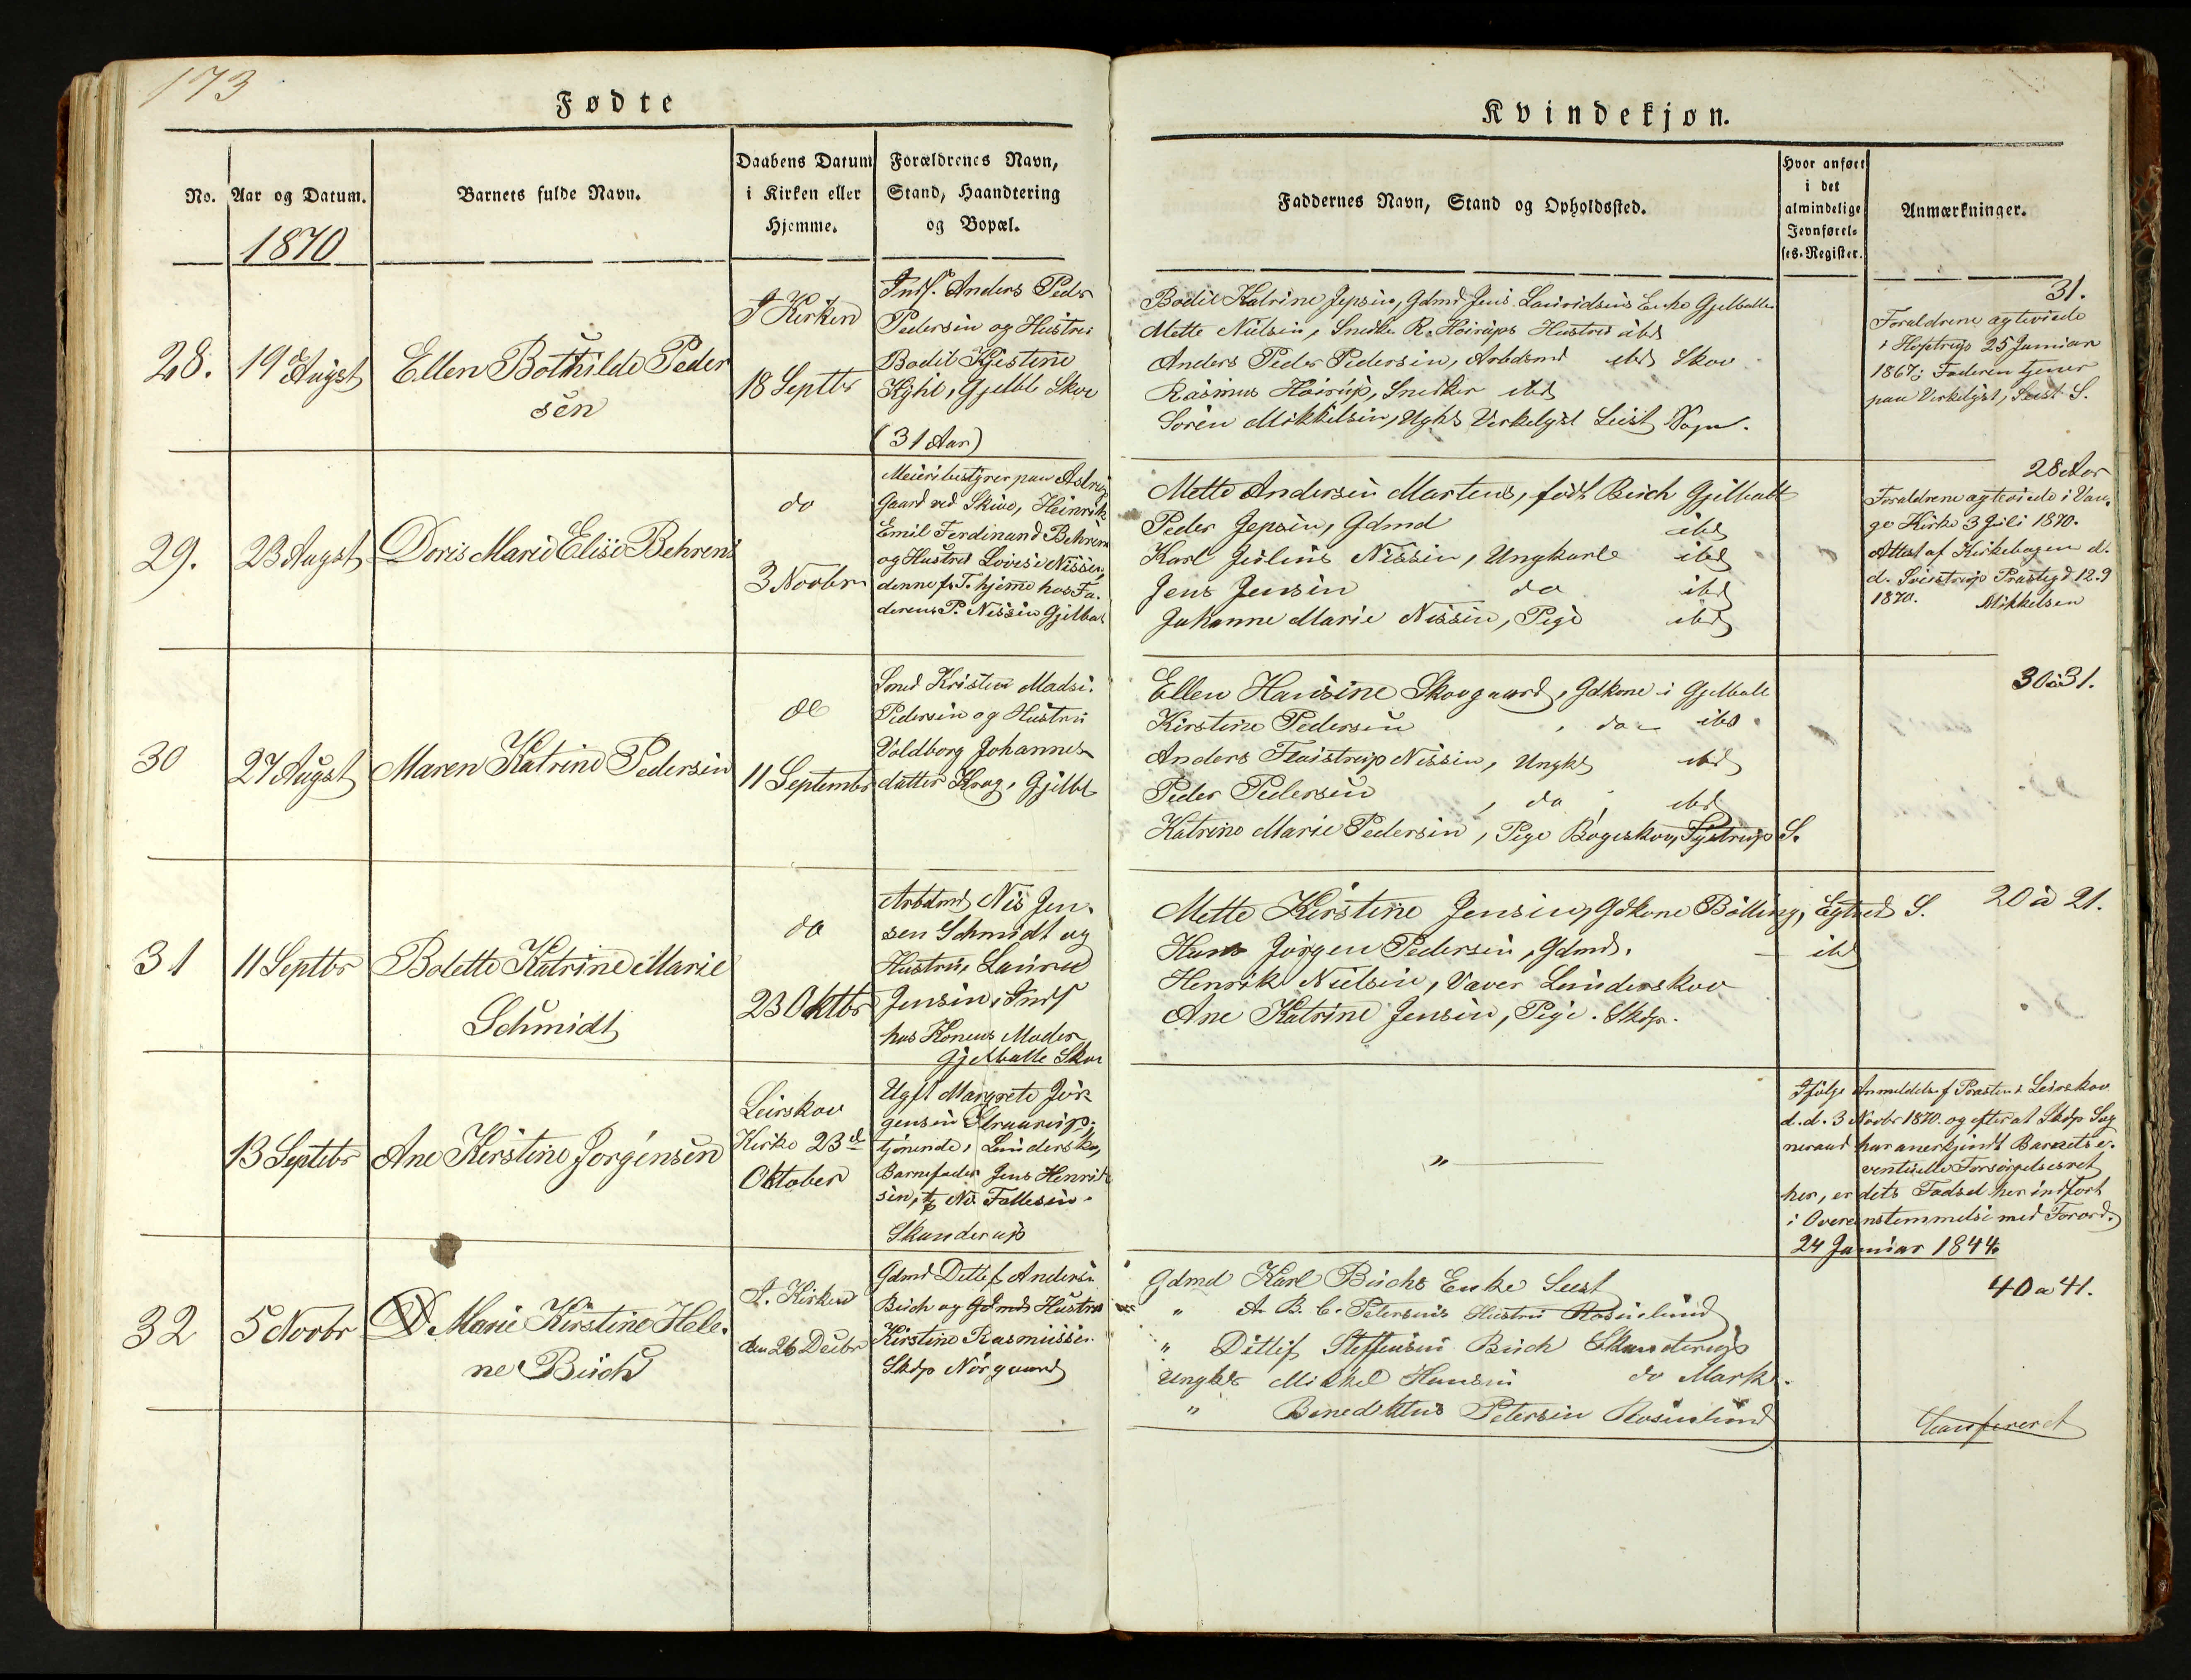 173
Fødte
Kvindekjøn.
No.
Aar og Datum.
1870
Barnets fulde Navn.
Daabens Datum
i Kirken eller
Hjemme.
Forældrenes Navn,
Stand, Haandtering
og Bopæl.
Faddernes Navn, Stand og Opholdssted.
Hvor anført
i det
almindelige
Jevnførel-
ses-Register.
Anmærkninger.
28.
19 August
Ellen Bothilde Peder
sen
I Kirken
18 Septbr
Inds. Anders Peder
Pedersen og Hustru
Bodil Kjestine
Kyhl, Gjelb. Skov
(31 Aar)
Bodil Katrine Jepsen, Gdmd Jens Lauridsens Enke Gjelballe
Mette Nielsen, Snedker R. Høirups Hustru ibd
Anders Peder Pedersen, Arbdsmd ibd Skov
Rasmus Høirup, Snedker ibd
Sören Mikkelsen, Ugks Virkelyst Seist Sogn.
31.
Forældrene ægteviede
i Hoptrup 25 Januar
1867; Faderen tjener
paa Virkelyst, Seist S.
29.
23 August
Doris Marie Elise Behrens
do
3 Novbr
Meieribestyrer paa Astrup
Gaard ved Skive, Heinrik
Emil Ferdinand Behrens
og Hustru Lovise Nissen,
denne f. T. hjemme hos Fa-
deren P. Nissen Gjelbal
Mette Andersen Martens, født Buch Gjelballe
Peder Jepsen, Gdmd ibd
Karl Julius Nissen, Ungkarl ibd
Jens Jensen do ibd
Johanne Marie Nissen, Pige ibd
28 Aar
Forældrene ægteviede i
Kirke 3 Juli 1870.
Attest af Kirkebogen d.
d. Præstegd 12.9
1870. Mikkelsen
30
27 August
Maren Katrine Pedersen
do
11 Septembr
Smed Kristen Madsen
Pedersen og Hustru
Voldborg Johannes-
datter Krag, Gjelbl
Ellen Hansine Skovgaard, Gdkone i Gjelballe
Kirstine Pedersen, do ibd
Anders Flaistrup Nissen, Ungk ibd
Peder Pedersen, do, ibd
Katrine Marie Pedersen, Pige Bøgeskov, S.
30 à 31.
31
11 Septbr
Bolette Katrine Marie
Schmidt
do
23 Oktbr
Arbdmd Nis Jen-
sen Schmidt og
Hustru Laurue
Jensen, Inds
hos Konens Moder
Gjelballe Skov
Mette Kirstine Jensen, Gdkone Bölling, Egtved S.
Hans Jörgen Pedersen, Gdmd. — ibd
Henrik Nielsen, Væver Lunderskov
Ane Katrine Jensen, Pige. Skdp.
20 à 21.
13 Septbr
Ane Kirstine Jørgensen
Leirskov
Kirke 23d
Oktober
Ugft Margrete Jör-
gensen Straarup,
tjenende i Lunderskov,
Barnefader Jens Henrik
sen,
Skanderup
"
Ifølge Anmeldelse f Præsten i Leirskov
d.d. 3 Novbr 1870. og efterat Skdp Sog
neraad har anerkjendt Barnets e-
ventuelle Forsørgelsesret
her, er dets Fødsel her indført
i Overensstemmelse med Forord.
24 Januar 1844.
32
5 Novbr
Marie Kirstine Hele-
ne Buch
I. Kirken
den 26 Decbr
Gdmd Detlef Andersen
Buch og Gdmds Hustru
Kirstine Rasmussen
Skdp Nörgaard
Gdmd Karl Buchs Enke Seest
" A. B. C. Petersens Hustru Rosenlund
" Ditlif Steffensen Buch Skanderup
Ungk Mikkel Hansen do Mark.
" Benediktus Petersen Rosenlund
40 a 41.
Confereret